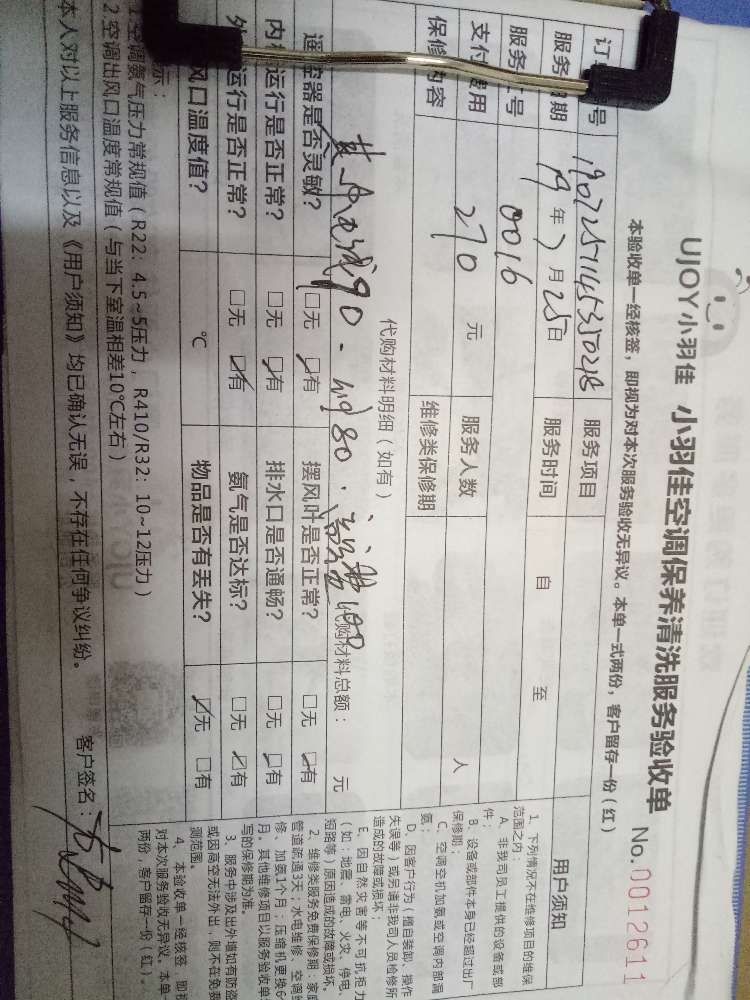 UJOY小羽佳 小羽佳空调保养清洗服务验收单 No.0012611
本验收单一经核签,即视为对本次服务验收无异议。本单一式两份,客户留存一份(红)
订 号 服务项目
服务 期 19年7月25日 服务时间 自 至
服务 号 0016
支付 费用 270 元 服务人数 人
保修内容 维修类保修期
代购材料明细(如有)
90 80 100 代购材料总额: 元
遥控器是否灵敏? □无 ☑有 摆风叶是否正常? □无 ☑有
内机运行是否正常? □无 ☑有 排水口是否通畅? □无 ☑有
外 运行是否正常? □无 ☑有 氨气是否达标? □无 ☑有
风口温度值? ℃ 物品是否有丢失? ☑无 □有
1 空调氨气压力常规值(R22:4.5~5压力,R410/R32:10~12压力)
2 空调出风口温度常规值(与当下室温相差10℃左右)
本人对以上服务信息以及《用户须知》均已确认无误,不存在任何争议纠纷。 客户签名:
用户须知
1、下列情况不在维修项目的维保
范围之内:
A、非我司员工提供的设备或部
件;
B、设备或部件本身已经超过出厂
保修期;
C、空调空机加氨或空调内部漏
氨;
D、因客户行为(擅自装卸、操作
失误等)或另请非我司人员检修所
造成的故障或损坏;
E、因自然灾害等不可抗拒力
(如:地震、雷电、火灾、停电、
短路等)原因造成的故障或损坏。
2、维修类服务免费保修期:家庭
管道疏通3天;水电维修、空调维
修、加氨1个月;压缩机更换6
月,其他维修项目以服务验收单
写的保修期为准。
3、服务中涉及出外墙如有防盗
或因高空无法外出,则不在免费
测范围。
4、本验收单一经核签,即视
对本次服务验收无异议。本单
两份,客户留存一份(红)。